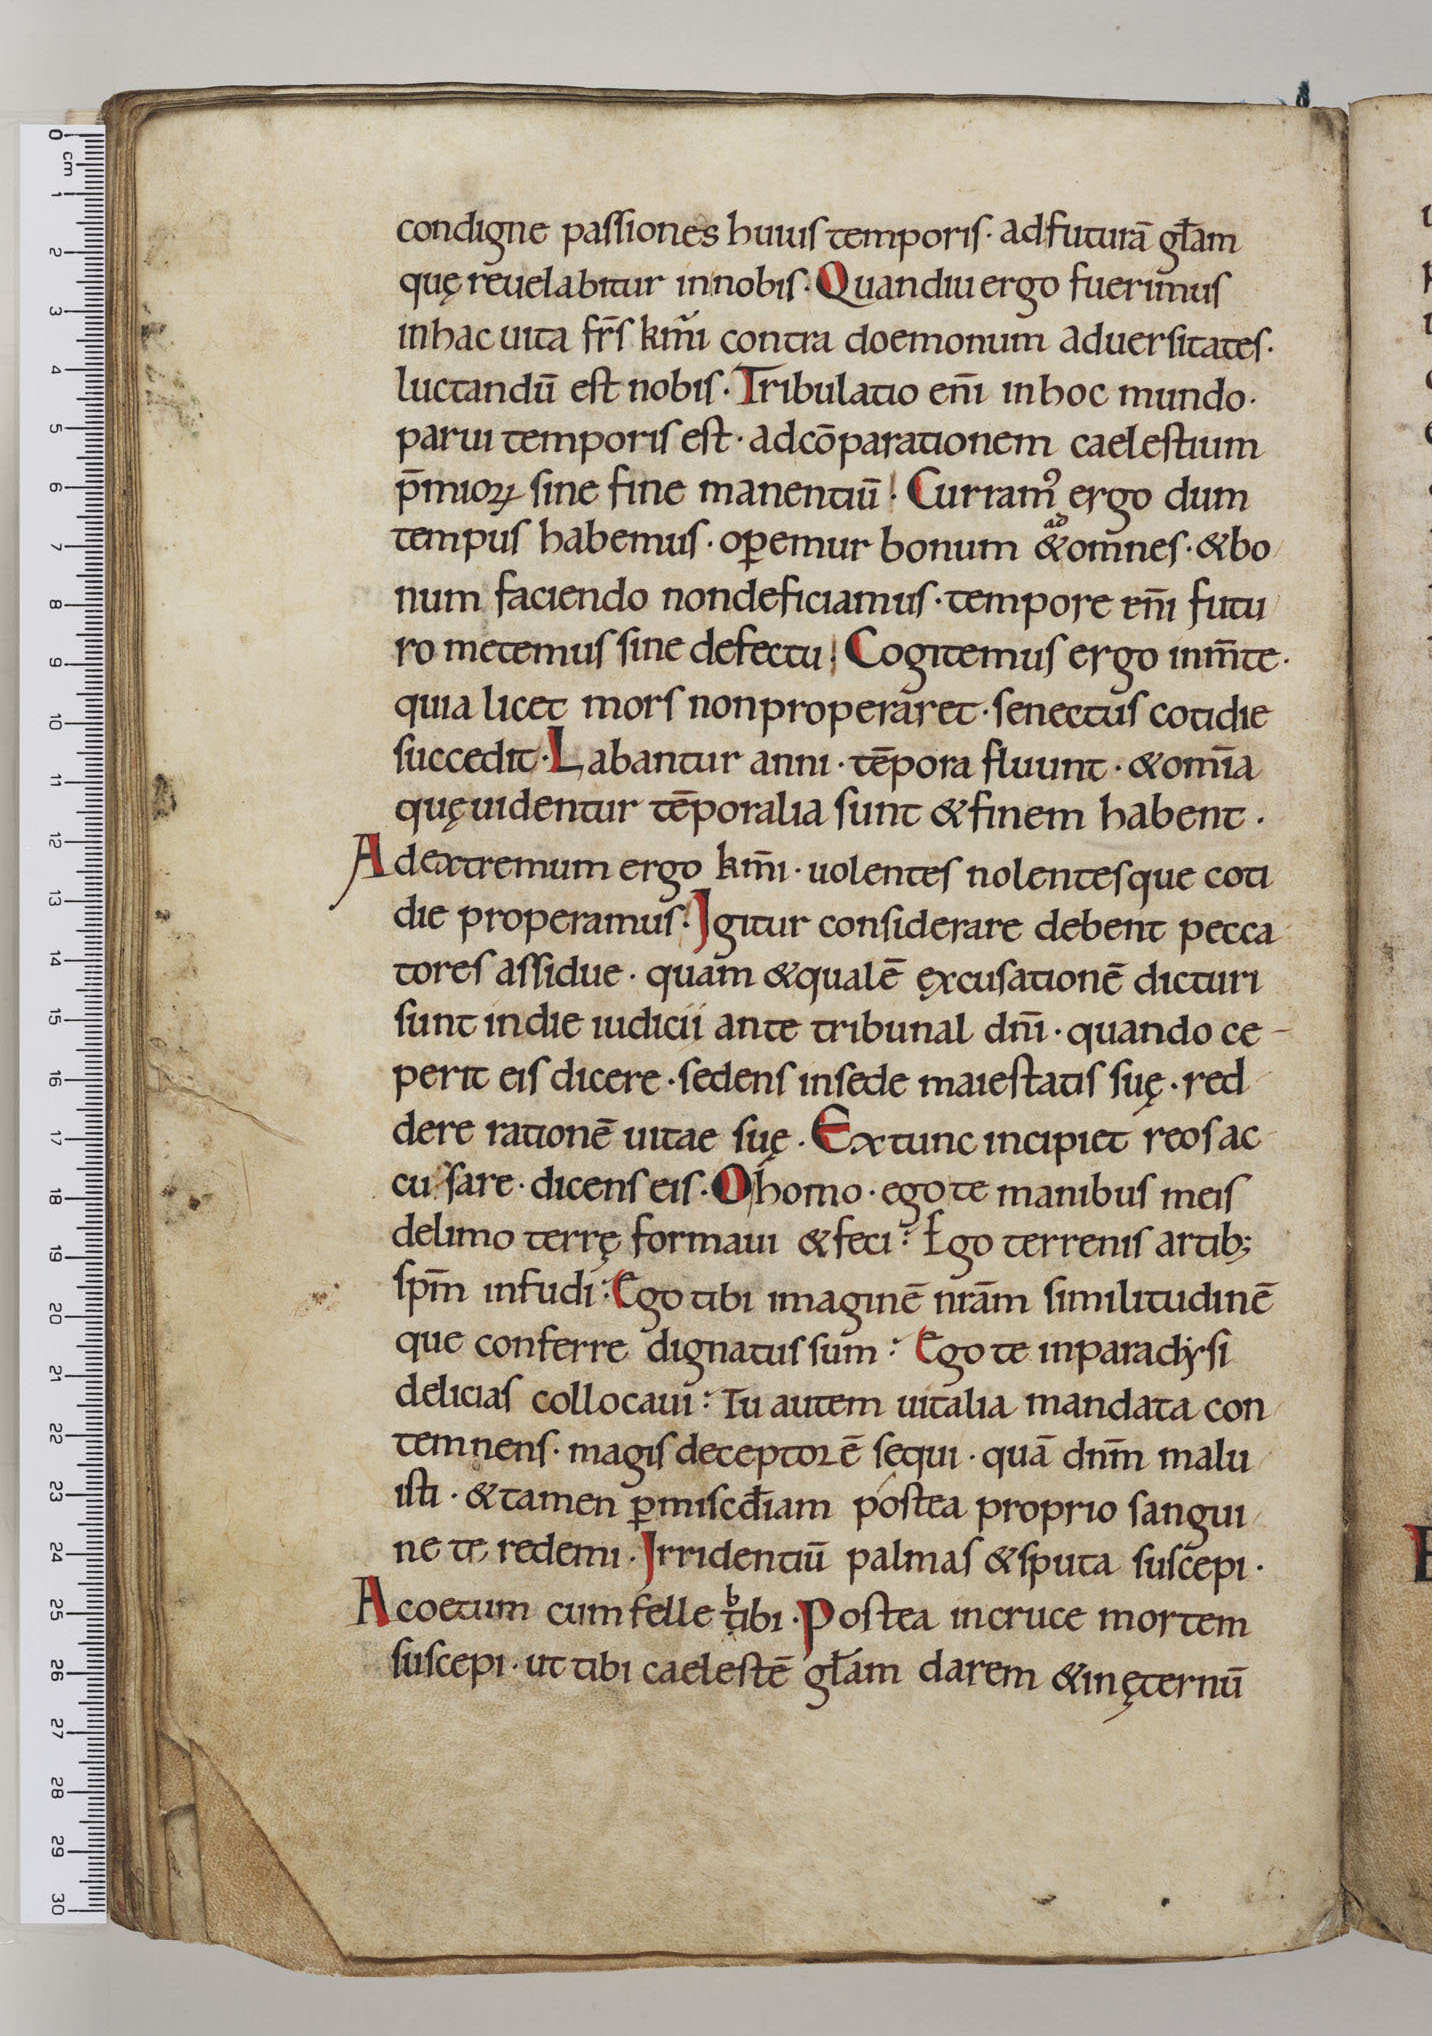 condigne passiones huius temporis · ad futurā gƚam
quę reuelabitur in nobis · Quandiu ergo fuerimus
in hac uita fr̄s km̄i contra doemonum aduersitates ·
luctandū est nobis · Tribulatio en̄i in hoc mundo ·
parui temporis est · ad cōparationem caelestium
p̄mioꝝ sine fine manentiū · Curramꝰ ergo dum
tempus habemus · oꝑemur bonum ad & omnes · & bo
num faciendo non deficiamus · tempore en̄i futu
ro metemus sine defectu · Cogitemus ergo in m̄te ·
quia licet mors non properaret · senectus cotidie
succedit · Labantur anni · tēpora fluunt · & om̄ia
quę uidentur tēporalia sunt & finem habent ·
Ad extremum ergo km̄i · uolentes nolentesque coti
die properamus · Igitur considerare debent pecca
tores assidue · quam & qualē ęxcusationē dicturi
sunt in die iudicii ante tribunal dn̄i · quando ce-
perit eis dicere · sedens in sede maiestatis suę · red
dere rationē uitae suę · Ex tunc incipiet reos ac
cusare · dicens eis · O homo · ego te manibus meis
de limo terrę formaui & feci · Ego terrenis artib;
sp̄m infudi · Ego tibi imaginē nr̄am similitudinē
que conferre dignatus sum · Ego te in paradysi
delicias collocaui · Tu autem uitalia mandata con
temnens · magis deceptorē sequi · quā dn̄m malu
isti · & tamen ꝑ miscđiam postea proprio sangui
ne te redemi · Irridentiū palmas & sputa suscepi ·
Acoetum cum felle bibi · Postea in cruce mortem
suscepi · ut tibi caelestē gƚam darem & in ęternū
0 cm
1
2
3
4
5
6
7
8
9
10
11
12
13
14
15
16
17
18
19
20
21
22
23
24
25
26
27
28
29
30